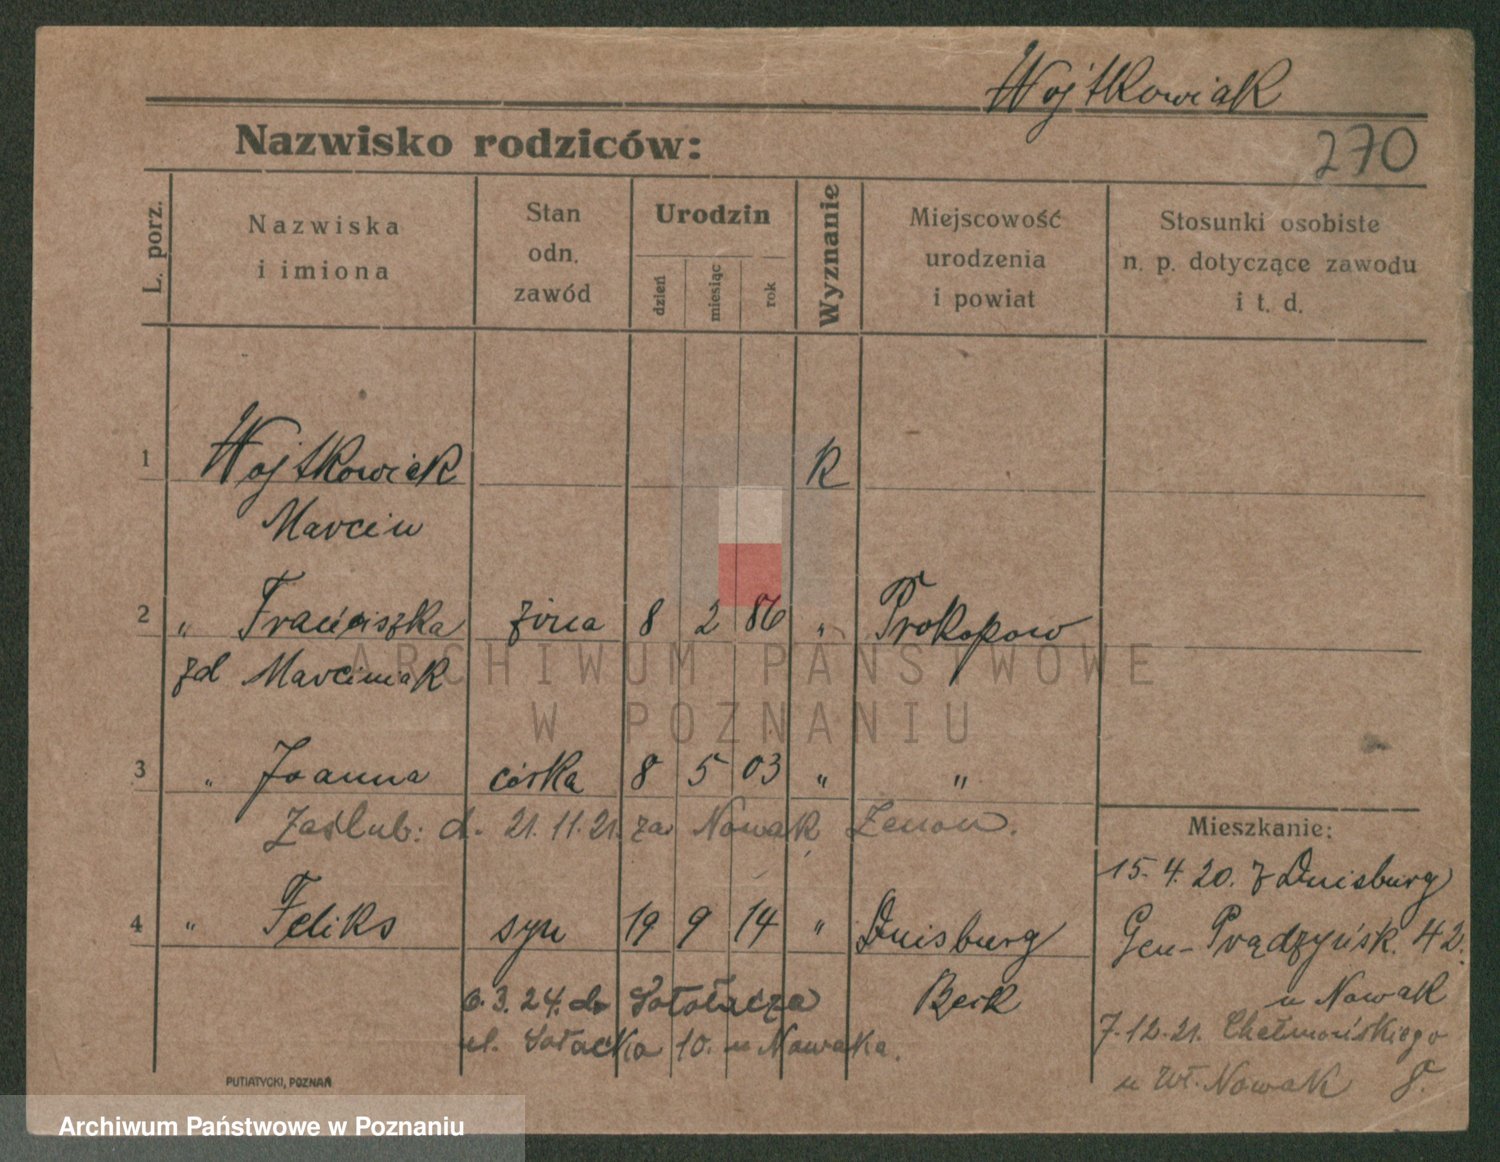 Wojtkowiak
Nazwisko rodziców:
270
L. porz.
Nazwiska
i imiona
Stan
odn.
zawód
Urodzin
dzień
miesiąc
rok
Wyznanie
Miejscowość
urodzenia
i powiat
Stosunki osobiste
n. p. dotyczące zawodu
i t. d.
1 Wojtkowiak R
Marcin
2 " Franciszka żona 8 2 86 " Prokopow
zd Marciniak
ARCHIWUM PAŃSTWOWE
W POZNANIU
3 " Joanna córka 8 5 03 " "
Zaślub: d. 21.11.21. za Nowak Zenon.
Mieszkanie:
15.4.20. z Duisburg
4 " Feliks syn 19 9 14 " Duisburg
Gen-Prądzyńsk. 42.
Beck
u Nowak
6.3.24. do Sołacza
ul. Sołacka 10. u Nowaka.
7.12.21. Chełmońskiego
u Wł. Nowak 8.
PUTIATYCKI, POZNAŃ
Archiwum Państwowe w Poznaniu